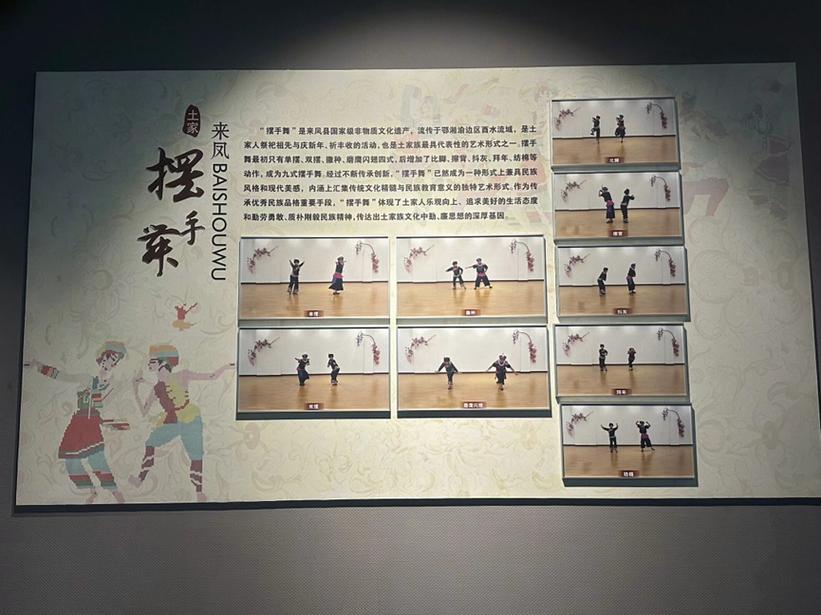 土家
摆手舞
来凤 BAISHOUWU
“摆手舞”是来凤县国家级非物质文化遗产，流传于鄂湘渝边区酉水流域，是土
家人祭祀祖先与庆新年、祈丰收的活动，也是土家族最具代表性的艺术形式之一。摆手
舞最初只有单摆、双摆、撒种、磨鹰闪翅四式，后增加了比脚、擦背、抖灰、拜年、纺棉等
动作，成为九式摆手舞。经过不断传承创新，“摆手舞”已然成为一种形式上兼具民族
风格和现代美感，内涵上汇集传统文化精髓与民族教育意义的独特艺术形式。作为传
承优秀民族品格重要手段，“摆手舞”体现了土家人乐观向上、追求美好的生活态度
和勤劳勇敢、质朴刚毅民族精神，传达出土家族文化中勤、廉思想的深厚基因。
比脚
擦背
单摆
撒种
抖灰
双摆
磨鹰闪翅
拜年
纺棉